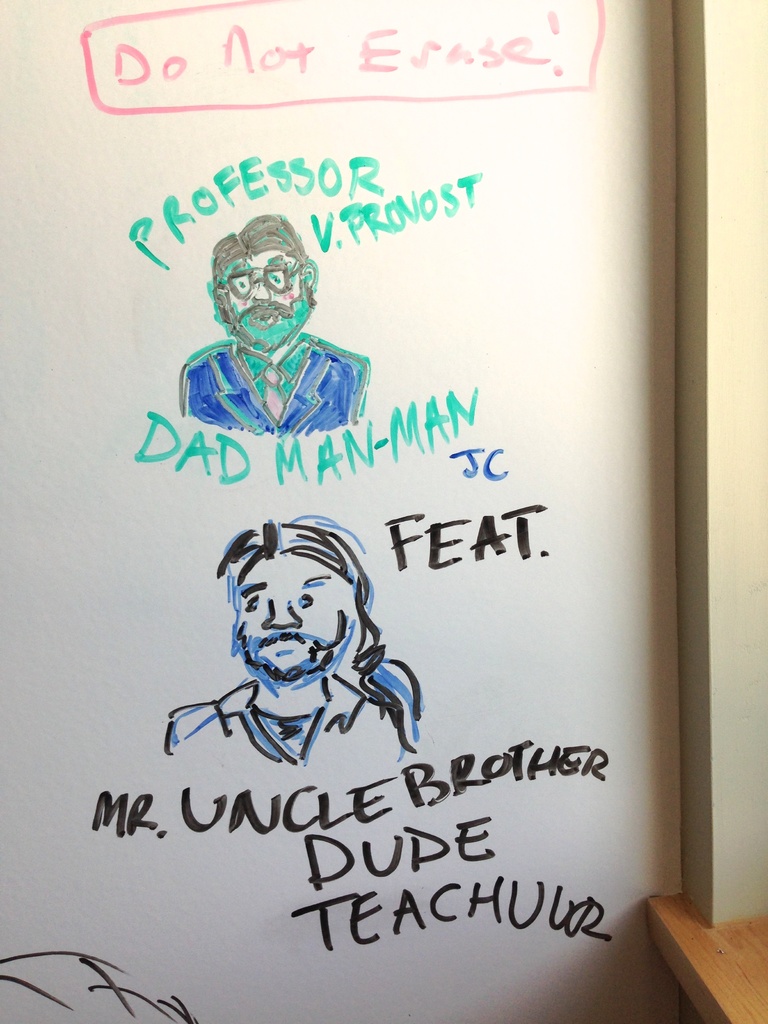 Do Not Erase!
PROFESSOR
V. PROVOST
DAD MAN-MAN
JC
FEAT.
MR. UNCLE BROTHER
DUDE